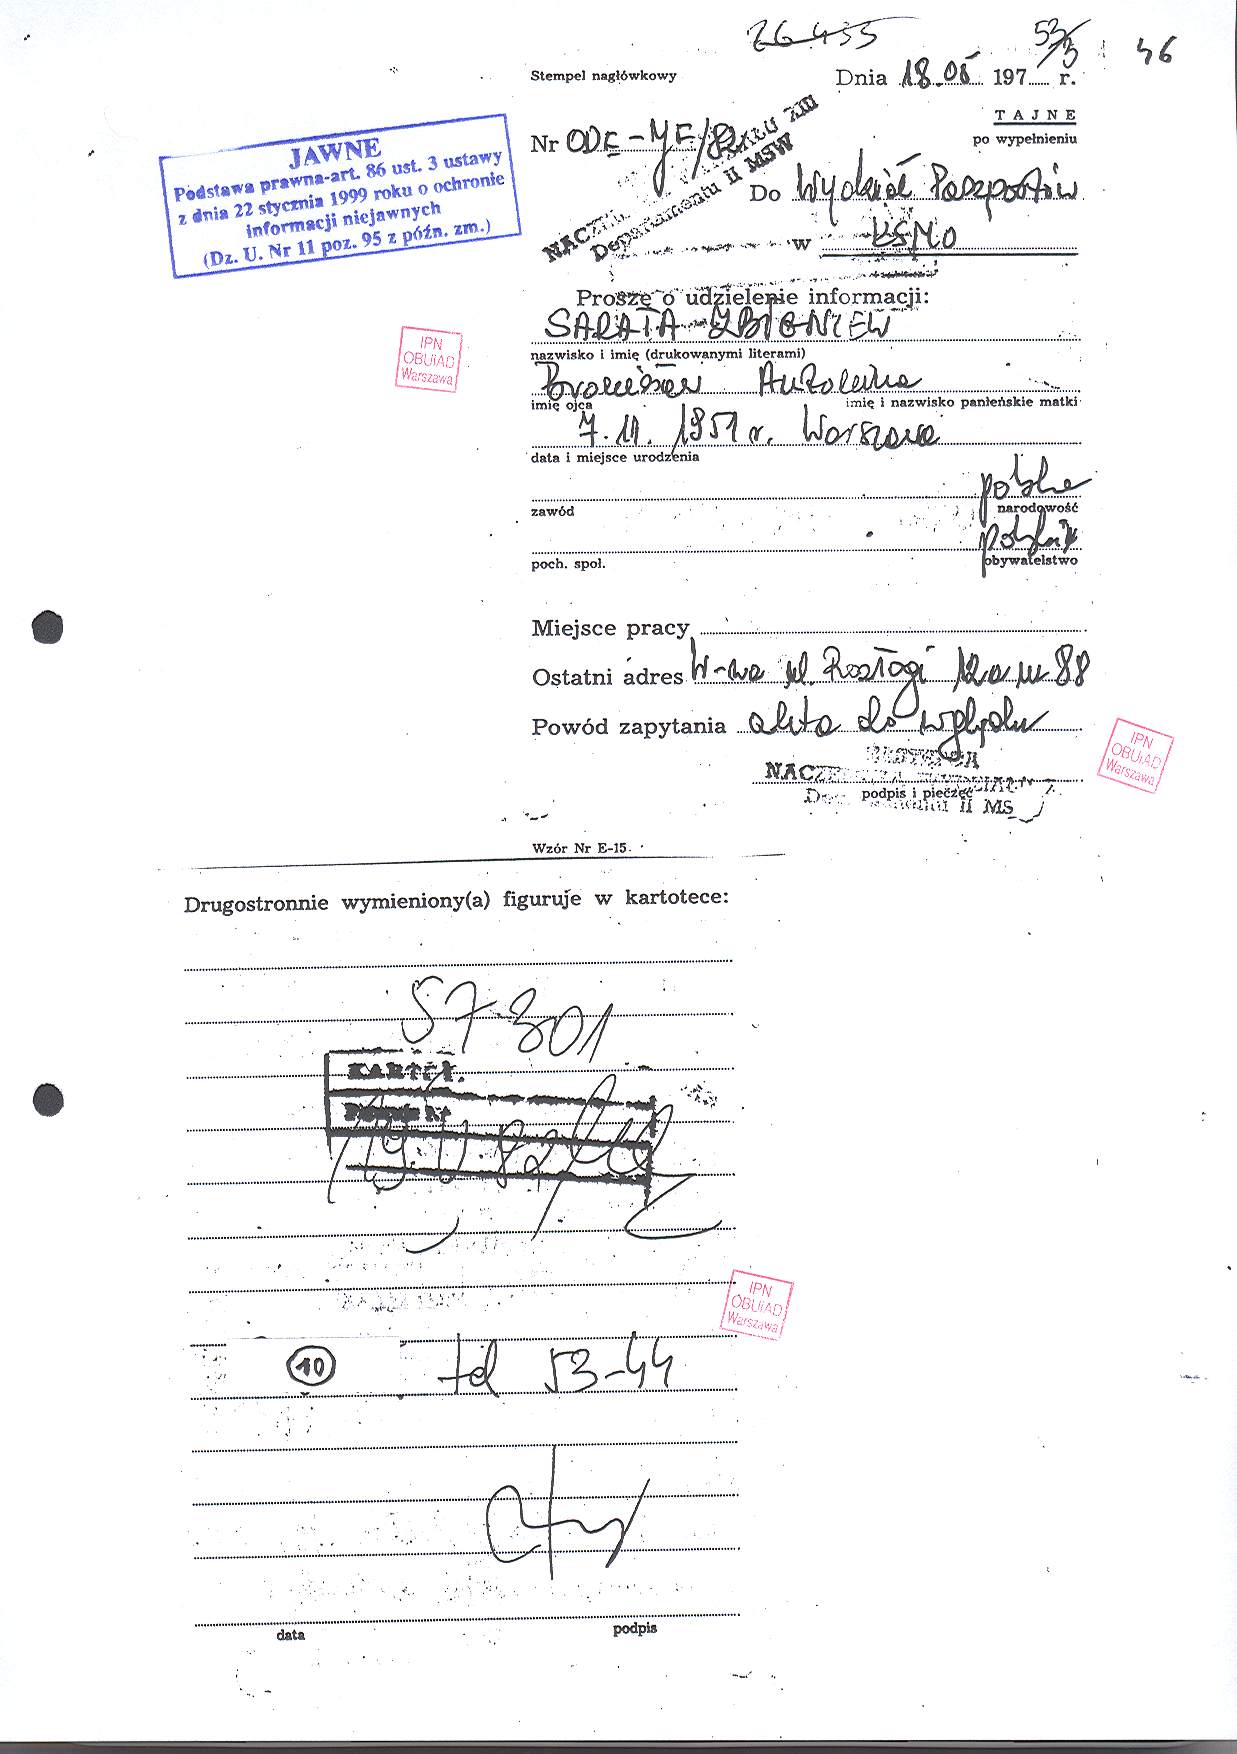 26435
53/3
46
Stempel nagłówkowy
Dnia 18.05 197 r.
TAJNE
po wypełnieniu
JAWNE
Podstawa prawna-art. 86 ust. 3 ustawy
z dnia 22 stycznia 1999 roku o ochronie
informacji niejawnych
(Dz. U. Nr 11 poz. 95 z późn. zm.)
Nr
XIII
Departamentu II MSW
Do Wydział Paszportów
w KSMO
Proszę o udzielenie informacji:
SARATA ZBIGNIEW
nazwisko i imię (drukowanymi literami)
IPN
OBUiAD
Warszawa
Bronisław Antonina
imię ojca imię i nazwisko panieńskie matki
7.11.1951 r. Warszawa
data i miejsce urodzenia
polska
zawód narodowość
polskie
poch. społ. obywatelstwo
Miejsce pracy
Ostatni adres W-wa ul. Rozłogi 12a m 88
Powód zapytania akta do wglądu
IPN
OBUiAD
Warszawa
podpis i pieczęć
II MS
Wzór Nr E-15.
Drugostronnie wymieniony(a) figuruje w kartotece:
57301
IPN
OBUiAD
Warszawa
10 tel 53-44
data podpis